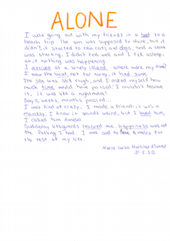 ALONE
I was going out with my friends in a boat to a
beach trip. The sun was supposed to shine, but it
didn't, it started to rain cats and dogs, and a storm
was starting. I didn't feel well and I fell asleep,
as if nothing was happening.
I arrived to a lonely island, where were my
I saw the boat not far away, it had sunk.
The sea was still rough, and I asked myself how
much time would have passed. I couldn't believe
it, it was like a nightmare!
Days, weeks, months passed...
I was kind of crazy. I made a friend: it was a
monkey, I know it sounds weird, but I loved him,
I called him
Suddenly lifeguards rescued me, happiness was all
the feeling I had. I was sad to
the rest of my life.
María
2º E.S.O